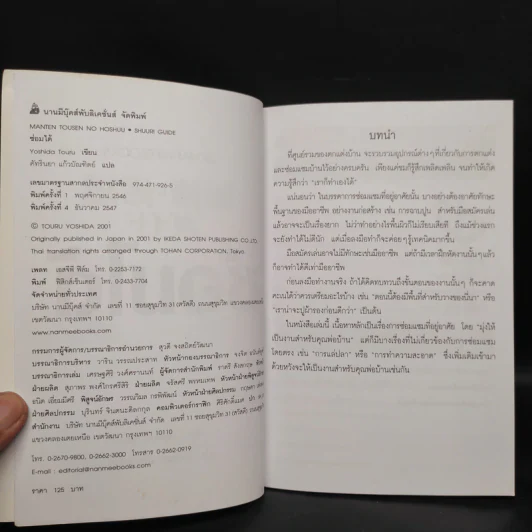 นานมีบุ๊คส์พับลิเคชั่นส์ จัดพิมพ์
MANTEN TOUSEN NO HOSHUU • SHUURI GUIDE
ซ่อมได้
Yoshida Touru เขียน
ศัทรินยา แก้วบัณฑิตย์ แปล
เลขมาตรฐานสากลประจำหนังสือ 974-471-926-5
พิมพ์ครั้งที่ 1 พฤศจิกายน 2546
พิมพ์ครั้งที่ 4 ธันวาคม 2547
© TOURU YOSHIDA 2001
Originally published in Japan in 2001 by IKEDA SHOTEN PUBLISHING CO.,LTD.
Thai translation rights arranged through TOHAN CORPORATION, Tokyo.
เพลท เอสจีพี ฟิล์ม โทร. 0-2253-7172
พิมพ์ ฟิสิกส์เซ็นเตอร์ โทร. 0-2433-7704
จัดจำหน่ายทั่วประเทศ
บริษัท นานมีบุ๊คส์ จำกัด เลขที่ 11 ซอยสุขุมวิท 31 (สวัสดี) ถนนสุขุมวิท แขวงคลองเตยเหนือ
เขตวัฒนา กรุงเทพฯ 10110
www.nanmeebooks.com
กรรมการผู้จัดการ/บรรณาธิการอำนวยการ สุวดี จงสถิตย์วัฒนา
บรรณาธิการบริหาร วาริน วรรณประสาท หัวหน้ากองบรรณาธิการ
บรรณาธิการเล่ม เศรษฐศิริ วงศ์ศรานนท์ ผู้จัดการสำนักพิมพ์
ฝ่ายผลิต สุภาพร พงศ์ไกรศรีสิริ ฝ่ายผลิต หัวหน้าฝ่ายพิสูจน์อักษร
พิสูจน์อักษร วรรณวิมล หัวหน้าฝ่ายศิลปกรรม
ฝ่ายศิลปกรรม บุรินทร์ จินตนะดิลกกุล คอมพิวเตอร์กราฟิก
สำนักงาน บริษัท นานมีบุ๊คส์ จำกัด เลขที่ 11 ซอยสุขุมวิท 31 (สวัสดี) ถนนสุขุมวิท
แขวงคลองเตยเหนือ เขตวัฒนา กรุงเทพฯ 10110
โทร. 0-2670-9800, 0-2662-3000 โทรสาร 0-2662-0919
E-mail : editorial@nanmeebooks.com
ราคา 125 บาท
บทนำ
ที่ศูนย์รวมของตกแต่งบ้าน จะรวบรวมอุปกรณ์ต่างๆที่เกี่ยวกับการตกแต่ง
และซ่อมแซมบ้านไว้อย่างครบครัน เพียงแค่ชมก็รู้สึกเพลิดเพลิน จนทำให้เกิด
ความรู้สึกว่า "เราก็ทำเองได้"
แน่นอนว่า ในบรรดาการซ่อมแซมที่อยู่อาศัยนั้น บางอย่างต้องอาศัยทักษะ
พื้นฐานของมืออาชีพ อย่างงานก่อสร้าง เช่น การฉาบปูน สำหรับมือสมัครเล่น
แล้วอาจจะเป็นเรื่องยาก ไม่ว่าทำอย่างไรพื้นผิวก็ไม่เรียบเสียที ถึงแม้ช่วงแรก
จะยังทำได้ไม่ดีนัก แต่เมื่อลงมือทำก็จะค่อยๆรู้เทคนิคมากขึ้น
มือสมัครเล่นอาจไม่มีทักษะเช่นมืออาชีพ แต่ถ้ามีเวลาฝึกหัดงานนั้นๆแล้ว
ก็อาจทำได้ดีเท่ามืออาชีพ
ก่อนลงมือทำงานจริง ถ้าได้คิดทบทวนถึงขั้นตอนของงานนั้นๆ ก็จะคาด
คะเนได้ว่าควรเตรียมอะไรบ้าง เช่น "ตอนนี้ต้องมีพื้นที่สำหรับวางของนี่นา" หรือ
"เราน่าจะปูผ้ารองก่อนดีกว่า" เป็นต้น
ในหนังสือเล่มนี้ เนื้อหาหลักเป็นเรื่องการซ่อมแซมที่อยู่อาศัย โดย "มุ่งให้
เป็นงานสำหรับคุณพ่อบ้าน" แต่ก็มีบางเรื่องที่ไม่เกี่ยวข้องกับการซ่อมแซม
โดยตรง เช่น "การแล่ปลา" หรือ "การทำความสะอาด" ซึ่งเพิ่มเติมเข้ามา
ด้วยหวังจะให้เป็นงานสำหรับคุณพ่อบ้านเช่นกัน